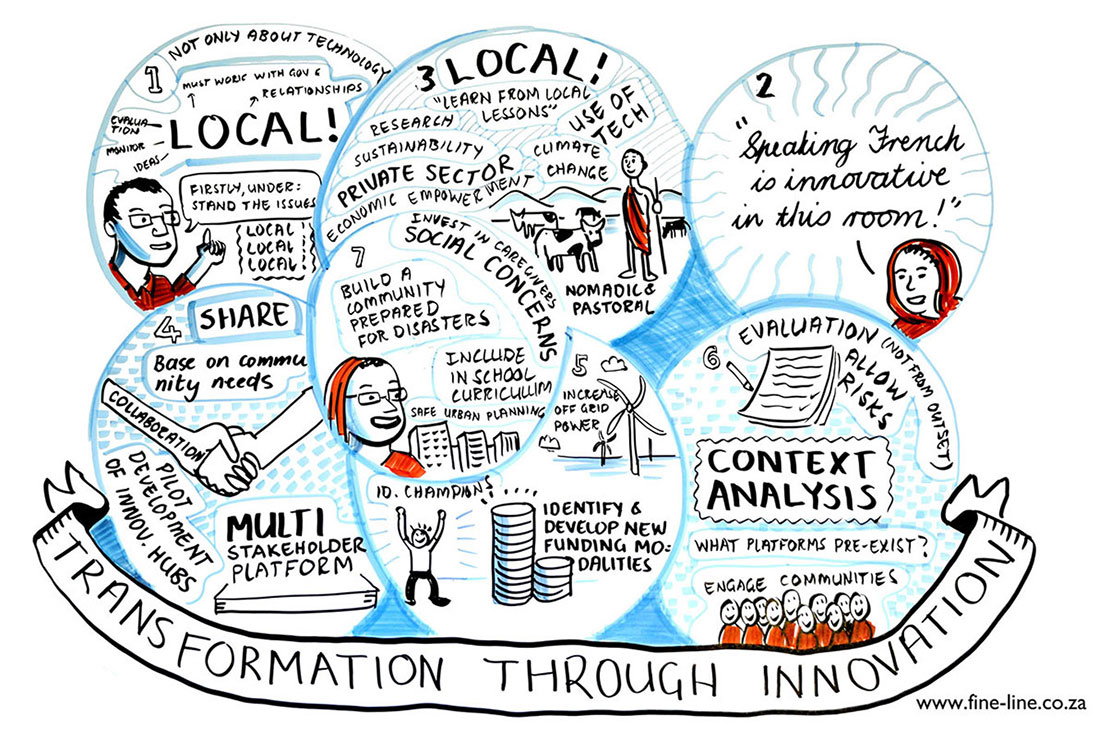 1
NOT ONLY ABOUT TECHNOLOGY
MUST WORK WITH GOV &
RELATIONSHIPS
EVALUA
TION
MONITOR
IDEAS
LOCAL!
FIRSTLY, UNDER:
STAND THE ISSUES
LOCAL
LOCAL
LOCAL
3 LOCAL!
"LEARN FROM LOCAL
LESSONS"
USE OF
TECH
RESEARCH
SUSTAINABILITY
PRIVATE SECTOR
ECONOMIC EMPOWERMENT
CLIMATE
CHANGE
NOMADIC &
PASTORAL
2
"Speaking French
is innovative
in this room!"
4
SHARE
Base on commu
nity needs
COLLABORATION
PILOT
DEVELOPMENT
OF INNOV. HUBS
MULTI
STAKEHOLDER
PLATFORM
7
INVEST IN CAREGIVERS
SOCIAL CONCERNS
BUILD A
COMMUNITY
PREPARED
FOR DISASTERS
INCLUDE
IN SCHOOL
CURRICULUM
SAFE URBAN PLANNING
5
INCREASE
OFF GRID
POWER
10. CHAMPIONS
IDENTIFY &
DEVELOP NEW
FUNDING MO:
DALITIES
6
EVALUATION (NOT FROM OUTSET)
ALLOW
RISKS
CONTEXT
ANALYSIS
WHAT PLATFORMS PRE-EXIST?
ENGAGE COMMUNITIES
TRANSFORMATION THROUGH INNOVATION
www.fine-line.co.za